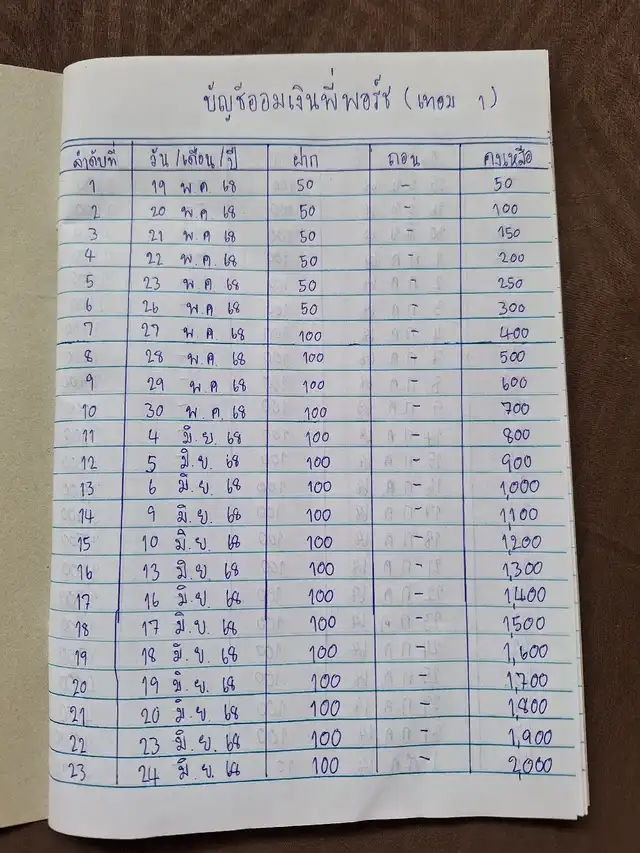 บัญชีออมเงินพี่พอร์ช (เทอม 1)
ลำดับที่ วัน/เดือน/ปี ฝาก ถอน คงเหลือ
1 19 พ.ค 68 50 - 50
2 20 พ.ค 68 50 - 100
3 21 พ.ค 68 50 - 150
4 22 พ.ค 68 50 - 200
5 23 พ.ค 68 50 - 250
6 26 พ.ค 68 50 - 300
7 27 พ.ค. 68 100 - 400
8 28 พ.ค. 68 100 - 500
9 29 พ.ค 68 100 - 600
10 30 พ.ค. 68 100 - 700
11 4 มิ.ย. 68 100 - 800
12 5 มิ.ย. 68 100 - 900
13 6 มิ.ย. 68 100 - 1,000
14 9 มิ.ย. 68 100 - 1,100
15 10 มิ.ย. 68 100 - 1,200
16 13 มิ.ย. 68 100 - 1,300
17 16 มิ.ย. 68 100 - 1,400
18 17 มิ.ย. 68 100 - 1,500
19 18 มิ.ย. 68 100 - 1,600
20 19 มิ.ย. 68 100 - 1,700
21 20 มิ.ย. 68 100 - 1,800
22 23 มิ.ย. 68 100 - 1,900
23 24 มิ.ย. 68 100 - 2,000